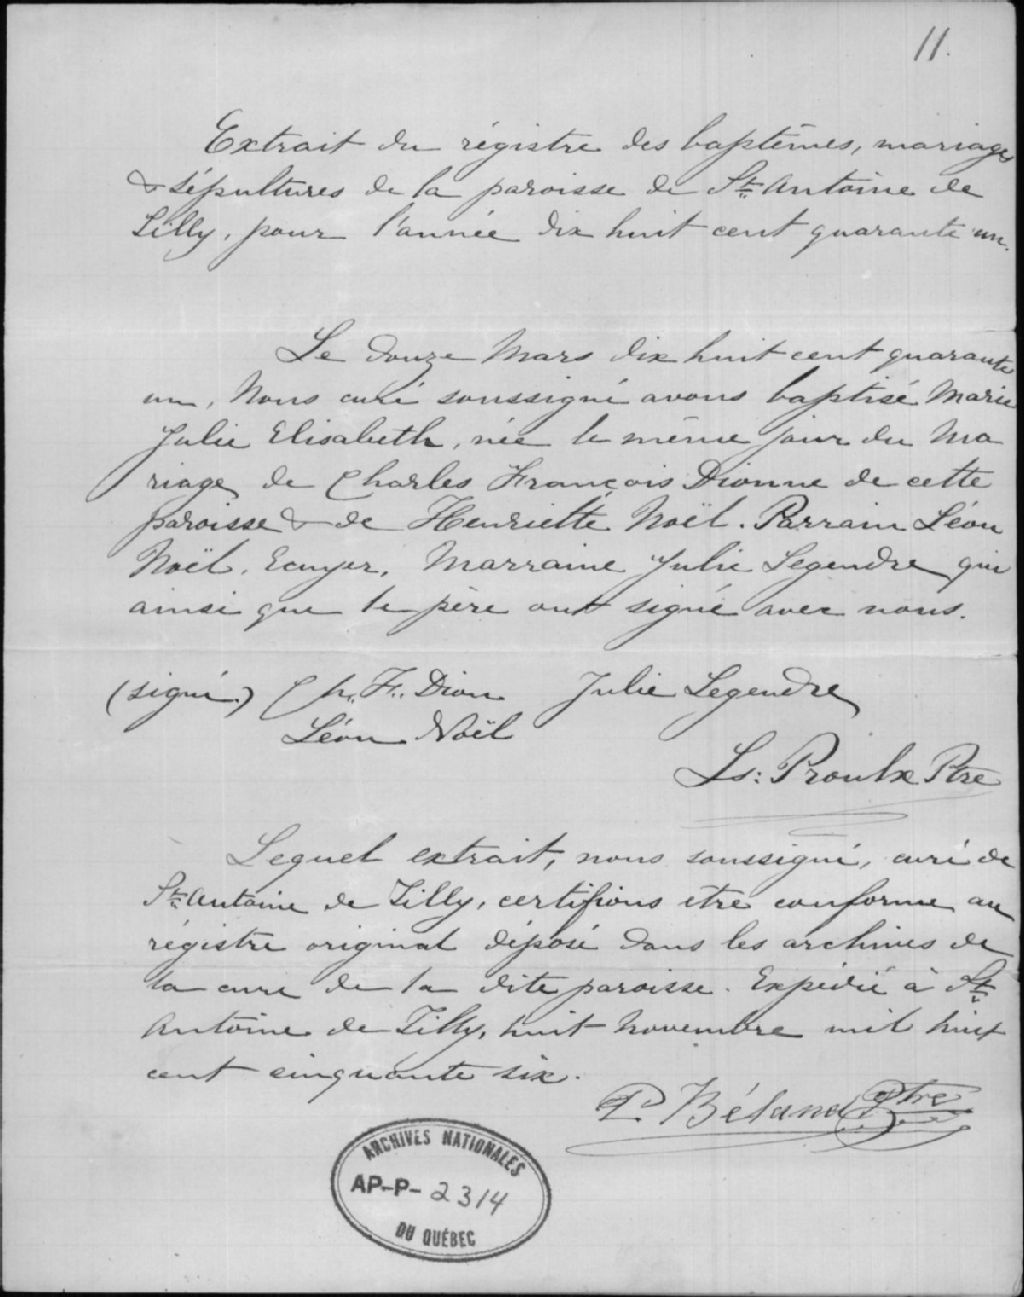 11.
Extrait du régistre des baptêmes, mariages
& sépultures de la paroisse de St. Antoine de
Tilly, pour l'année dix huit cent quarante un.
Le douze Mars dix huit cent quarante
un, Nous curé soussigné avons baptisé Marie
Julie Elisabeth, née le même jour du Ma
riage de Charles François Dionne de cette
paroisse & de Henriette Noël. Parrain Léon
Noël, Ecuyer, Marraine Julie Legendre qui
ainsi que le père ont signé avec nous.
(signé) Ch. F. Dion Julie Legendre
Léon Noël
Ls: Proulx Ptre
Lequel extrait, nous soussigné, curé de
St. Antoine de Tilly, certifions être conforme au
régistre original déposé dans les archives de
la cure de la dite paroisse. Expédié à St.
Antoine de Tilly, huit Novembre mil huit
cent cinquante six.
P. Béland Ptre
ARCHIVES NATIONALES
AP-P-2314
DU QUÉBEC